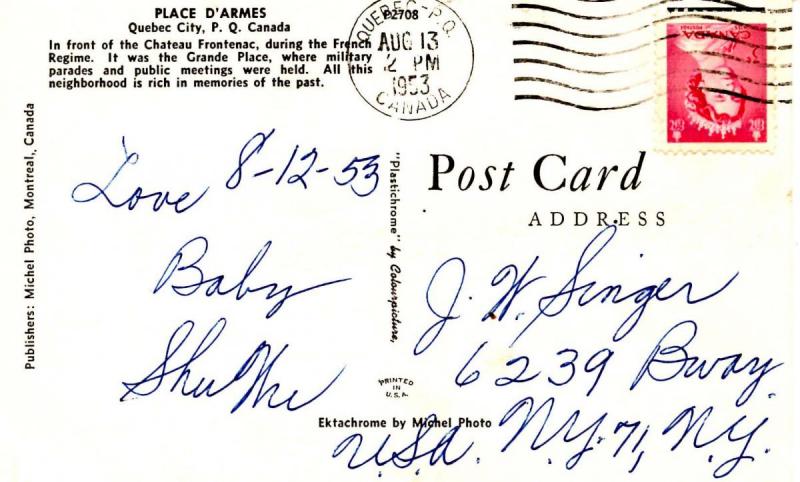 PLACE D'ARMES
Quebec City, P. Q. Canada
In front of the Chateau Frontenac, during the French
Regime. It was the Grande Place, where military
parades and public meetings were held. All this
neighborhood is rich in memories of the past.
P2708
QUEBEC - P.Q.
AUG 13
2 PM
1953
CANADA
CANADA
Publishers: Michel Photo, Montreal, Canada
"Plastichrome" by Colourpicture,
PRINTED
IN
U.S.A.
Ektachrome by Michel Photo
8-12-53
Love
Baby
Post Card
ADDRESS
J. W. Singer
6239 Bway
N.Y. 71, N.Y.
U.S.A.